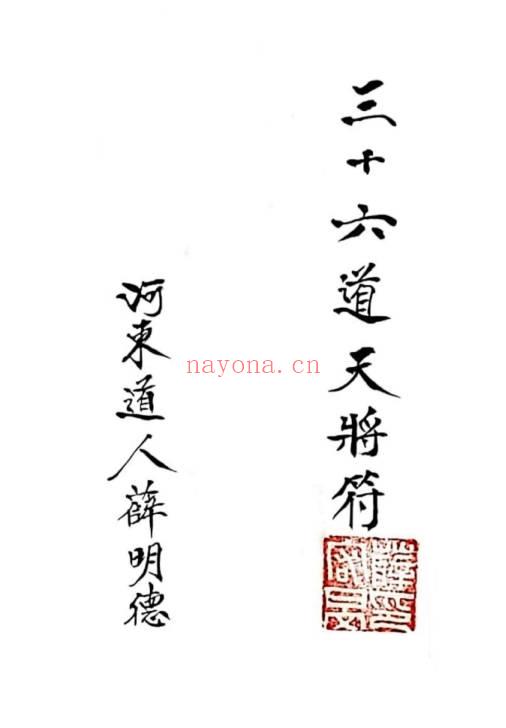 三十六道天將符
河東道人薛明德
nayona.cn